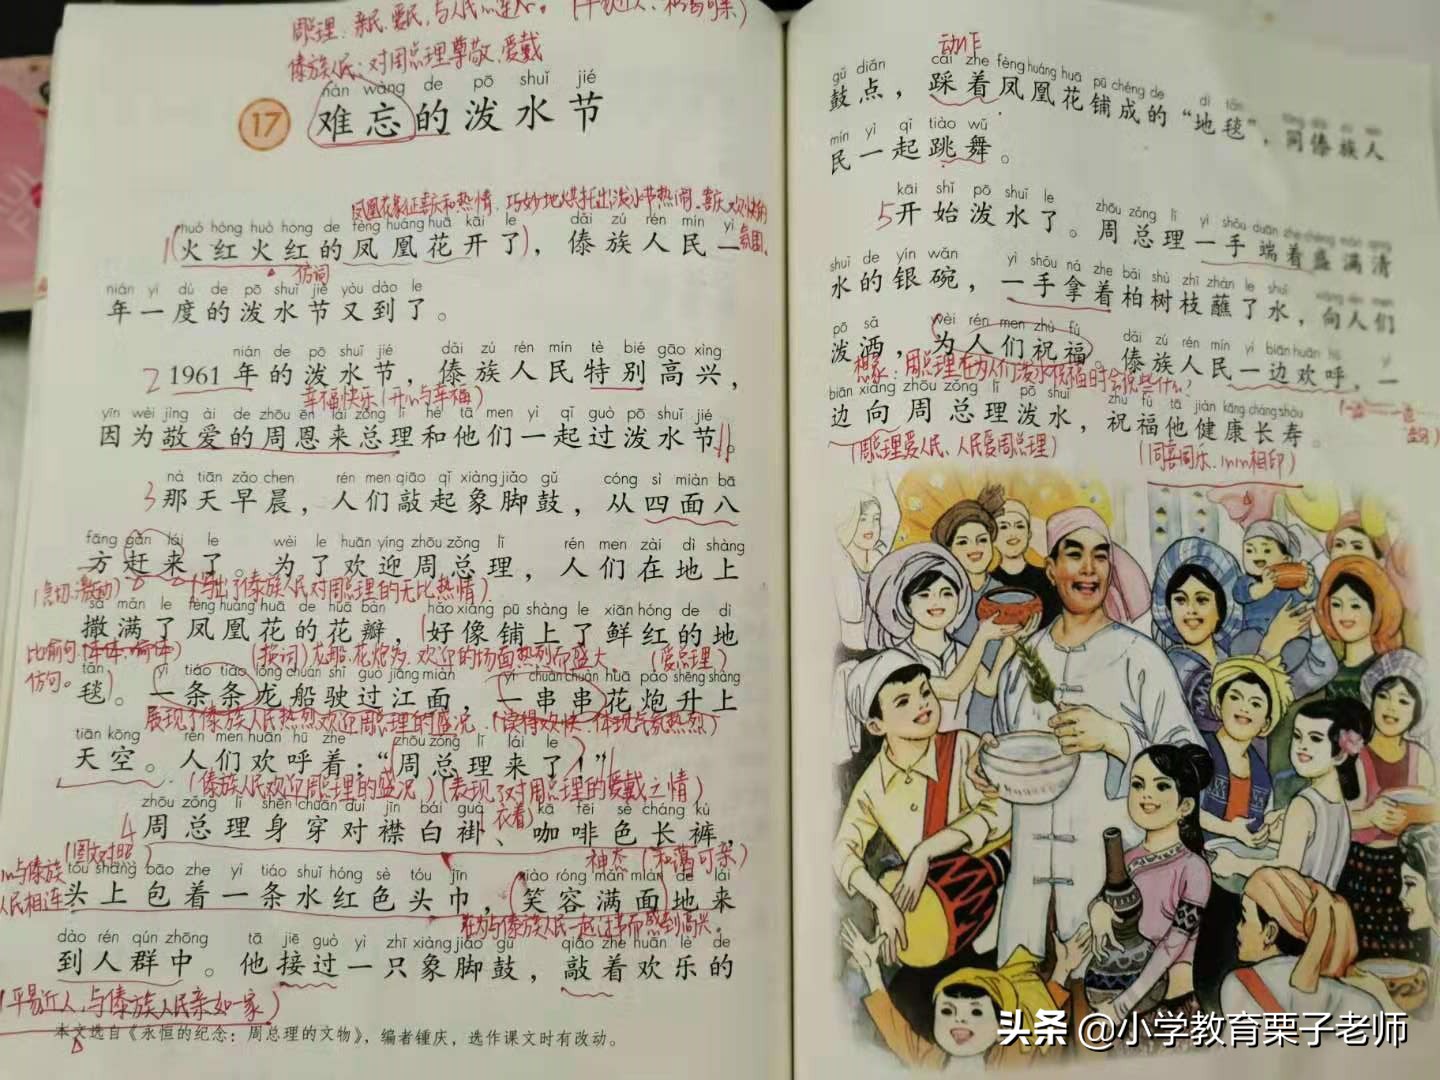 周总理:亲民、爱民,与人民心连心。(平易近人、和蔼可亲)
傣族人民:对周总理尊敬、爱戴
nán wàng de pō shuǐ jié
17 难忘的泼水节
凤凰花象征喜庆和热情,巧妙地烘托出泼水节热闹、喜庆、欢快的氛围。
huǒ hóng huǒ hóng de fèng huáng huā kāi le dǎi zú rén mín yì
1(火红火红的凤凰花开了),傣族人民一
仿词
nián yí dù de pō shuǐ jié yòu dào le
年一度的泼水节又到了。
nián de pō shuǐ jié dǎi zú rén mín tè bié gāo xìng
2 1961年的泼水节,傣族人民特别高兴,
幸福快乐(开心与幸福)
yīn wèi jìng ài de zhōu ēn lái zǒng lǐ hé tā men yì qǐ guò pō shuǐ jié
因为敬爱的周恩来总理和他们一起过泼水节。
nà tiān zǎo chen rén men qiāo qǐ xiàng jiǎo gǔ cóng sì miàn bā
3那天早晨,人们敲起象脚鼓,从四面八
fāng gǎn lái le wèi le huān yíng zhōu zǒng lǐ rén men zài dì shàng
方赶来了。为了欢迎周总理,人们在地上
(急切、激动) (写出了傣族人民对周总理的无比热情)
sǎ mǎn le fèng huáng huā de huā bàn hǎo xiàng pū shàng le xiān hóng de dì
撒满了凤凰花的花瓣,(好像铺上了鲜红的地
比喻句(本体、喻体) (换词)龙船、花炮多,欢迎的场面热烈而盛大。(爱总理)
仿句。
tǎn yì tiáo tiáo lóng chuán shǐ guò jiāng miàn yí chuàn chuàn huā pào shēng shàng
毯。一条条龙船驶过江面,一串串花炮升上
展现了傣族人民热烈欢迎周总理的盛况(读得欢快、体现气氛热烈)
tiān kōng rén men huān hū zhe zhōu zǒng lǐ lái le
天空。人们欢呼着:“周总理来了!”
(傣族人民欢迎周总理的盛况)(表现了对周总理的爱戴之情)
zhōu zǒng lǐ shēn chuān duì jīn bái guà kā fēi sè cháng kù
4周总理身穿对襟白褂、咖啡色长裤,
衣着
(图文对照) 神态(和蔼可亲)
心与傣族人民相连
tóu shàng bāo zhe yì tiáo shuǐ hóng sè tóu jīn xiào róng mǎn miàn de lái
头上包着一条水红色头巾,(笑容满面地来
在为与傣族人民一起过节而感到高兴。
dào rén qún zhōng tā jiē guò yí zhī xiàng jiǎo gǔ qiāo zhe huān lè de
到人群中。他接过一只象脚鼓,敲着欢乐的
(平易近人,与傣族人民亲如一家)
本文选自《永恒的纪念:周总理的文物》,编者锺庆,选作课文时有改动。
动作
gǔ diǎn cǎi zhe fèng huáng huā pū chéng de dì tǎn
鼓点,踩着凤凰花铺成的“地毯”,同傣族人
mín yì qǐ tiào wǔ
民一起跳舞。
kāi shǐ pō shuǐ le zhōu zǒng lǐ yì shǒu duān zhe chéng mǎn qīng
5开始泼水了。周总理一手端着盛满清
shuǐ de yín wǎn yì shǒu ná zhe bǎi shù zhī zhàn le shuǐ xiàng rén men
水的银碗,一手拿着柏树枝蘸了水,向人们
pō sǎ wèi rén men zhù fú dǎi zú rén mín yì biān huān hū yì
泼洒,为人们祝福。傣族人民一边欢呼,一
想象:周总理在为人们泼水祝福时会说些什么?
biān xiàng zhōu zǒng lǐ pō shuǐ zhù fú tā jiàn kāng cháng shòu
边向周总理泼水,祝福他健康长寿。
(一边……一边……造句)
(周总理爱人民、人民爱周总理) (同喜同乐、心心相印)
头条 @小学教育栗子老师